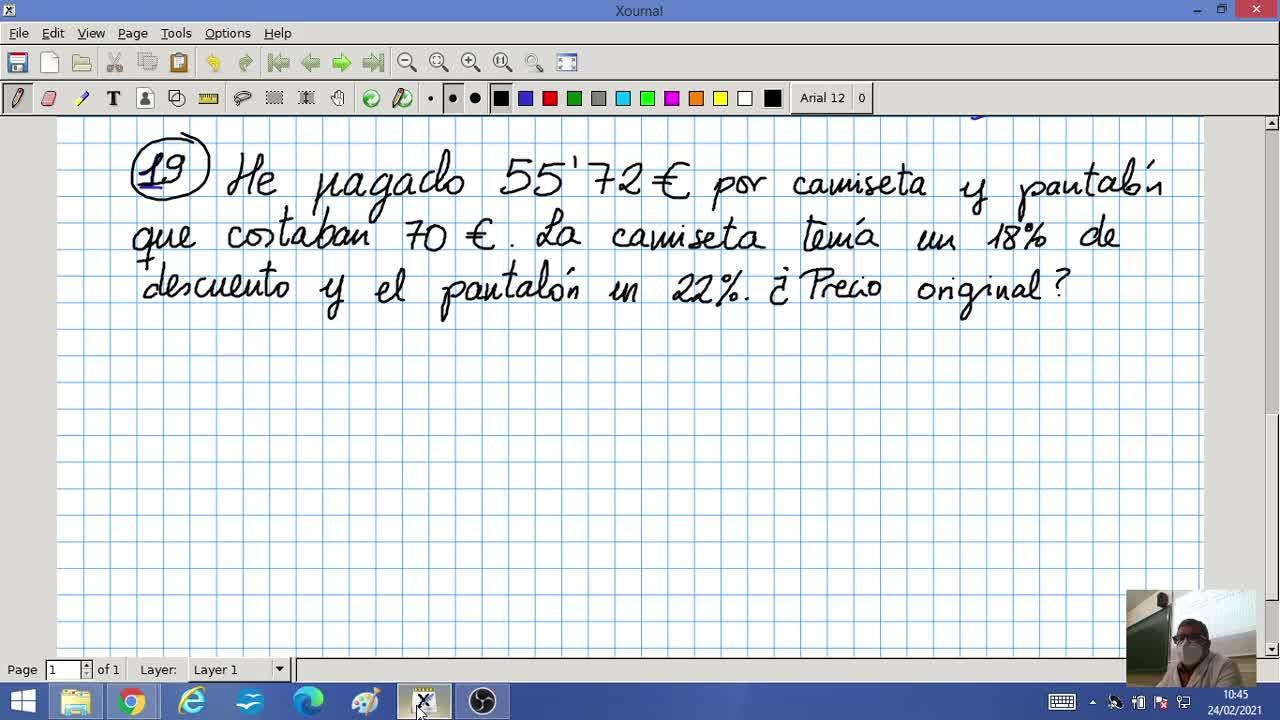 Xournal
File Edit View Page Tools Options Help
Arial 12 0
19 He pagado 55'72 € por camiseta y pantalón
que costaban 70 €. La camiseta tenía un 18% de
descuento y el pantalón un 22%. ¿Precio original?
Page 1 of 1 Layer: Layer 1
10:45
24/02/2021